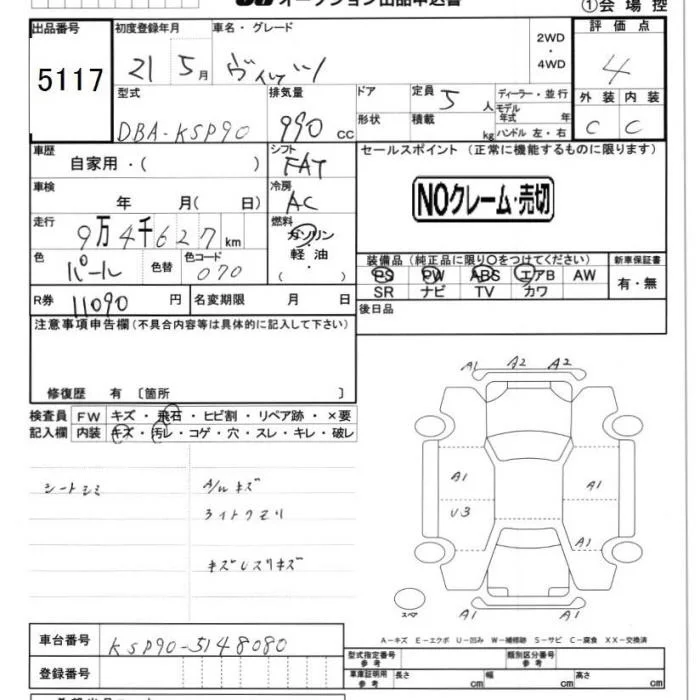 オークション出品申込書
①会場控
出品番号 初度登録年月 車名・グレード 2WD・4WD 評価点
5117 21 5月 ヴィッツ 4
型式 排気量 ドア 定員 5人 ディーラー・並行 外装 内装
DBA-KSP90 990cc 形状 積載 kg モデル年式 年 ハンドル 左・右 C C
車歴 シフト セールスポイント (正常に機能するものに限ります)
自家用・( ) FAT
車検 冷房
年 月( 日) AC NOクレーム・売切
走行 燃料
9万4千627km ガソリン・軽油・( )
色 パール 色替 色コード 070
装備品(純正品に限り○をつけてください) 新車保証書
PS PW ABS エアB AW 有・無
SR ナビ TV カワ
R券 11090円 名変期限 月 日 後日品
注意事項申告欄(不具合内容等は具体的に記入して下さい)
修復歴 有 〔箇所 〕
検査員 FW キズ・飛石・ヒビ割・リペア跡・×要
記入欄 内装 キズ・汚レ・コゲ・穴・スレ・キレ・破レ
A1 A2 A2
シートシミ A/Wキズ A1 A1
ライトクモリ U3
A1
キズレズリキズ
スペア A1 A1
A-キズ E-エクボ U-凹み W-補修跡 S-サビ C-腐食 XX-交換済
車台番号 KSP90-5148080
型式指定番号 参考 類別区分番号 参考
登録番号 車庫証明用 参考 長さ cm 幅 cm 高さ cm